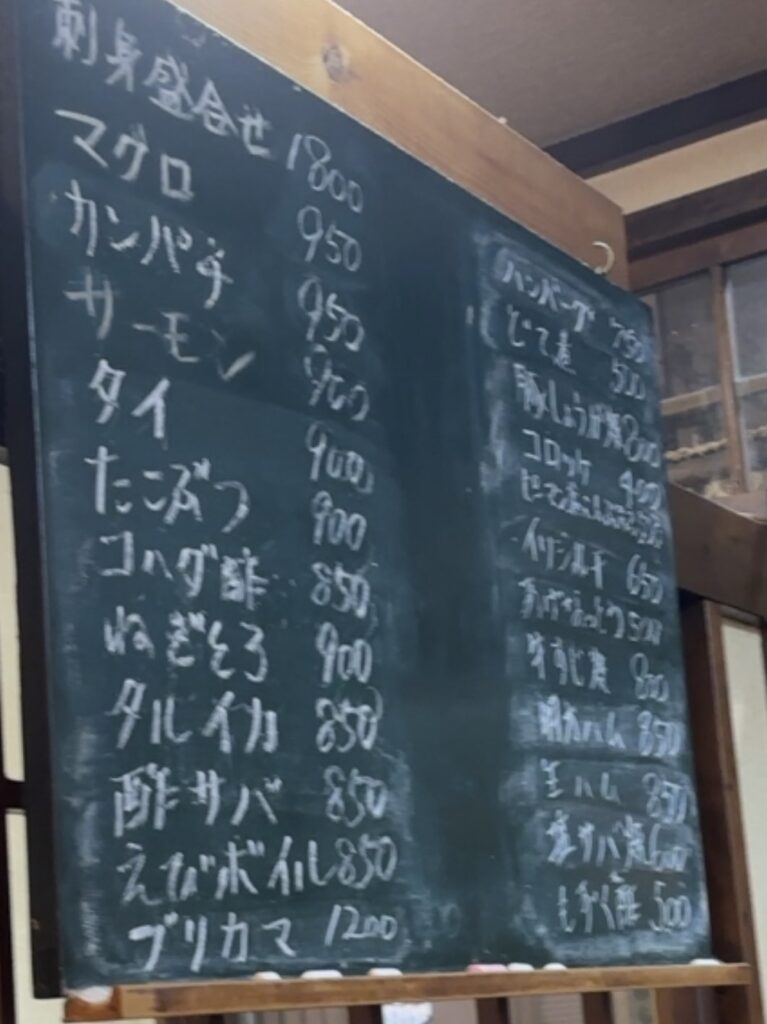 刺身盛合せ 1800
マグロ 950
カンパチ 950
サーモン 900
タイ 900
たこぶつ 900
コハダ酢 850
ねぎとろ 900
タルイカ 850
酢サバ 850
えびボイル 850
ブリカマ 1200
ハンバーグ 750
どて煮 500
豚しょうが焼 800
コロッケ 400
イワシルー干 650
あげなっとう 500
牛すじ煮 800
明太ハム 850
生ハム 850
塩サバ焼 600
もずく酢 500